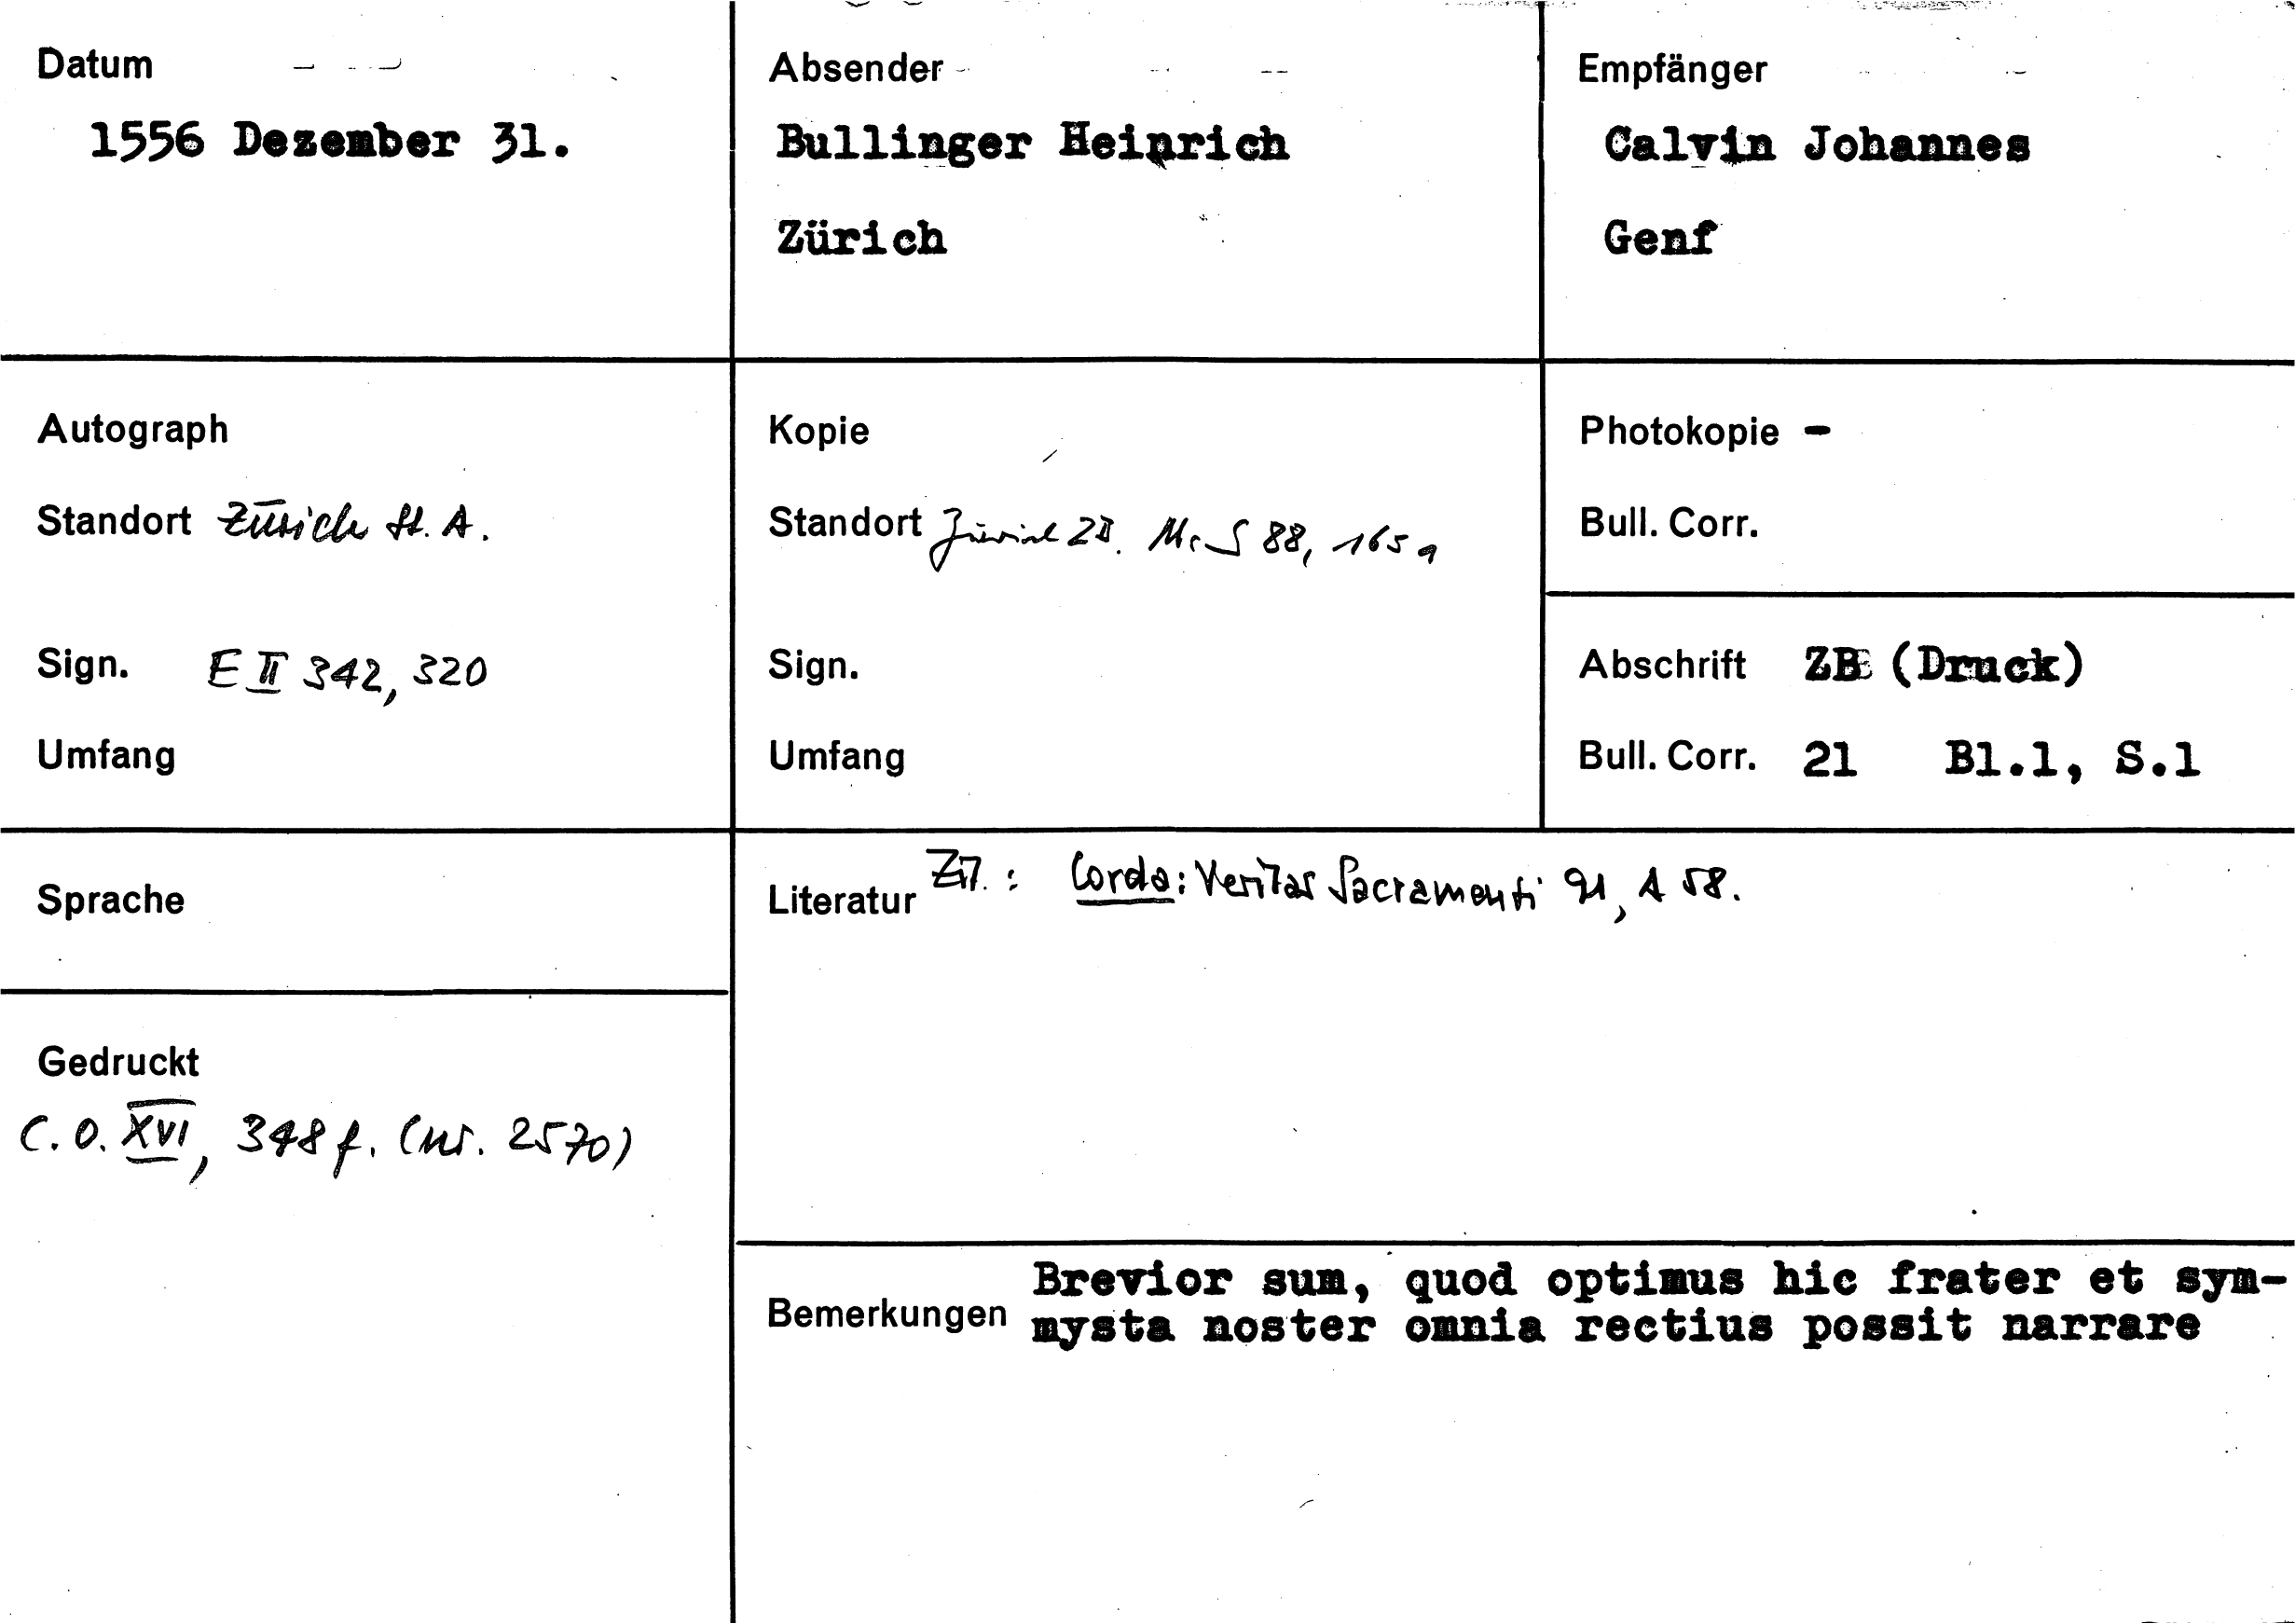 Datum
1556 Dezember 31.
Absender
Bullinger Heinrich
Zürich
Empfänger
Calvin Johannes
Genf
Autograph
Standort Zürich St. A.
Sign. E II 342, 320
Umfang
Kopie
Standort Zürich ZB. Ms S 88, 165
Sign.
Umfang
Photokopie -
Bull. Corr.
Abschrift ZB (Druck)
Bull. Corr. 21 Bl.1, S.1
Sprache
Gedruckt
C. O. XVI, 348 f. (nr. 2570)
Literatur Zit.: Corda: Veritas Sacramenti 91, A 58.
Bemerkungen
Brevior sum, quod optimus hic frater et sym-
mysta noster omnia rectius possit narrare